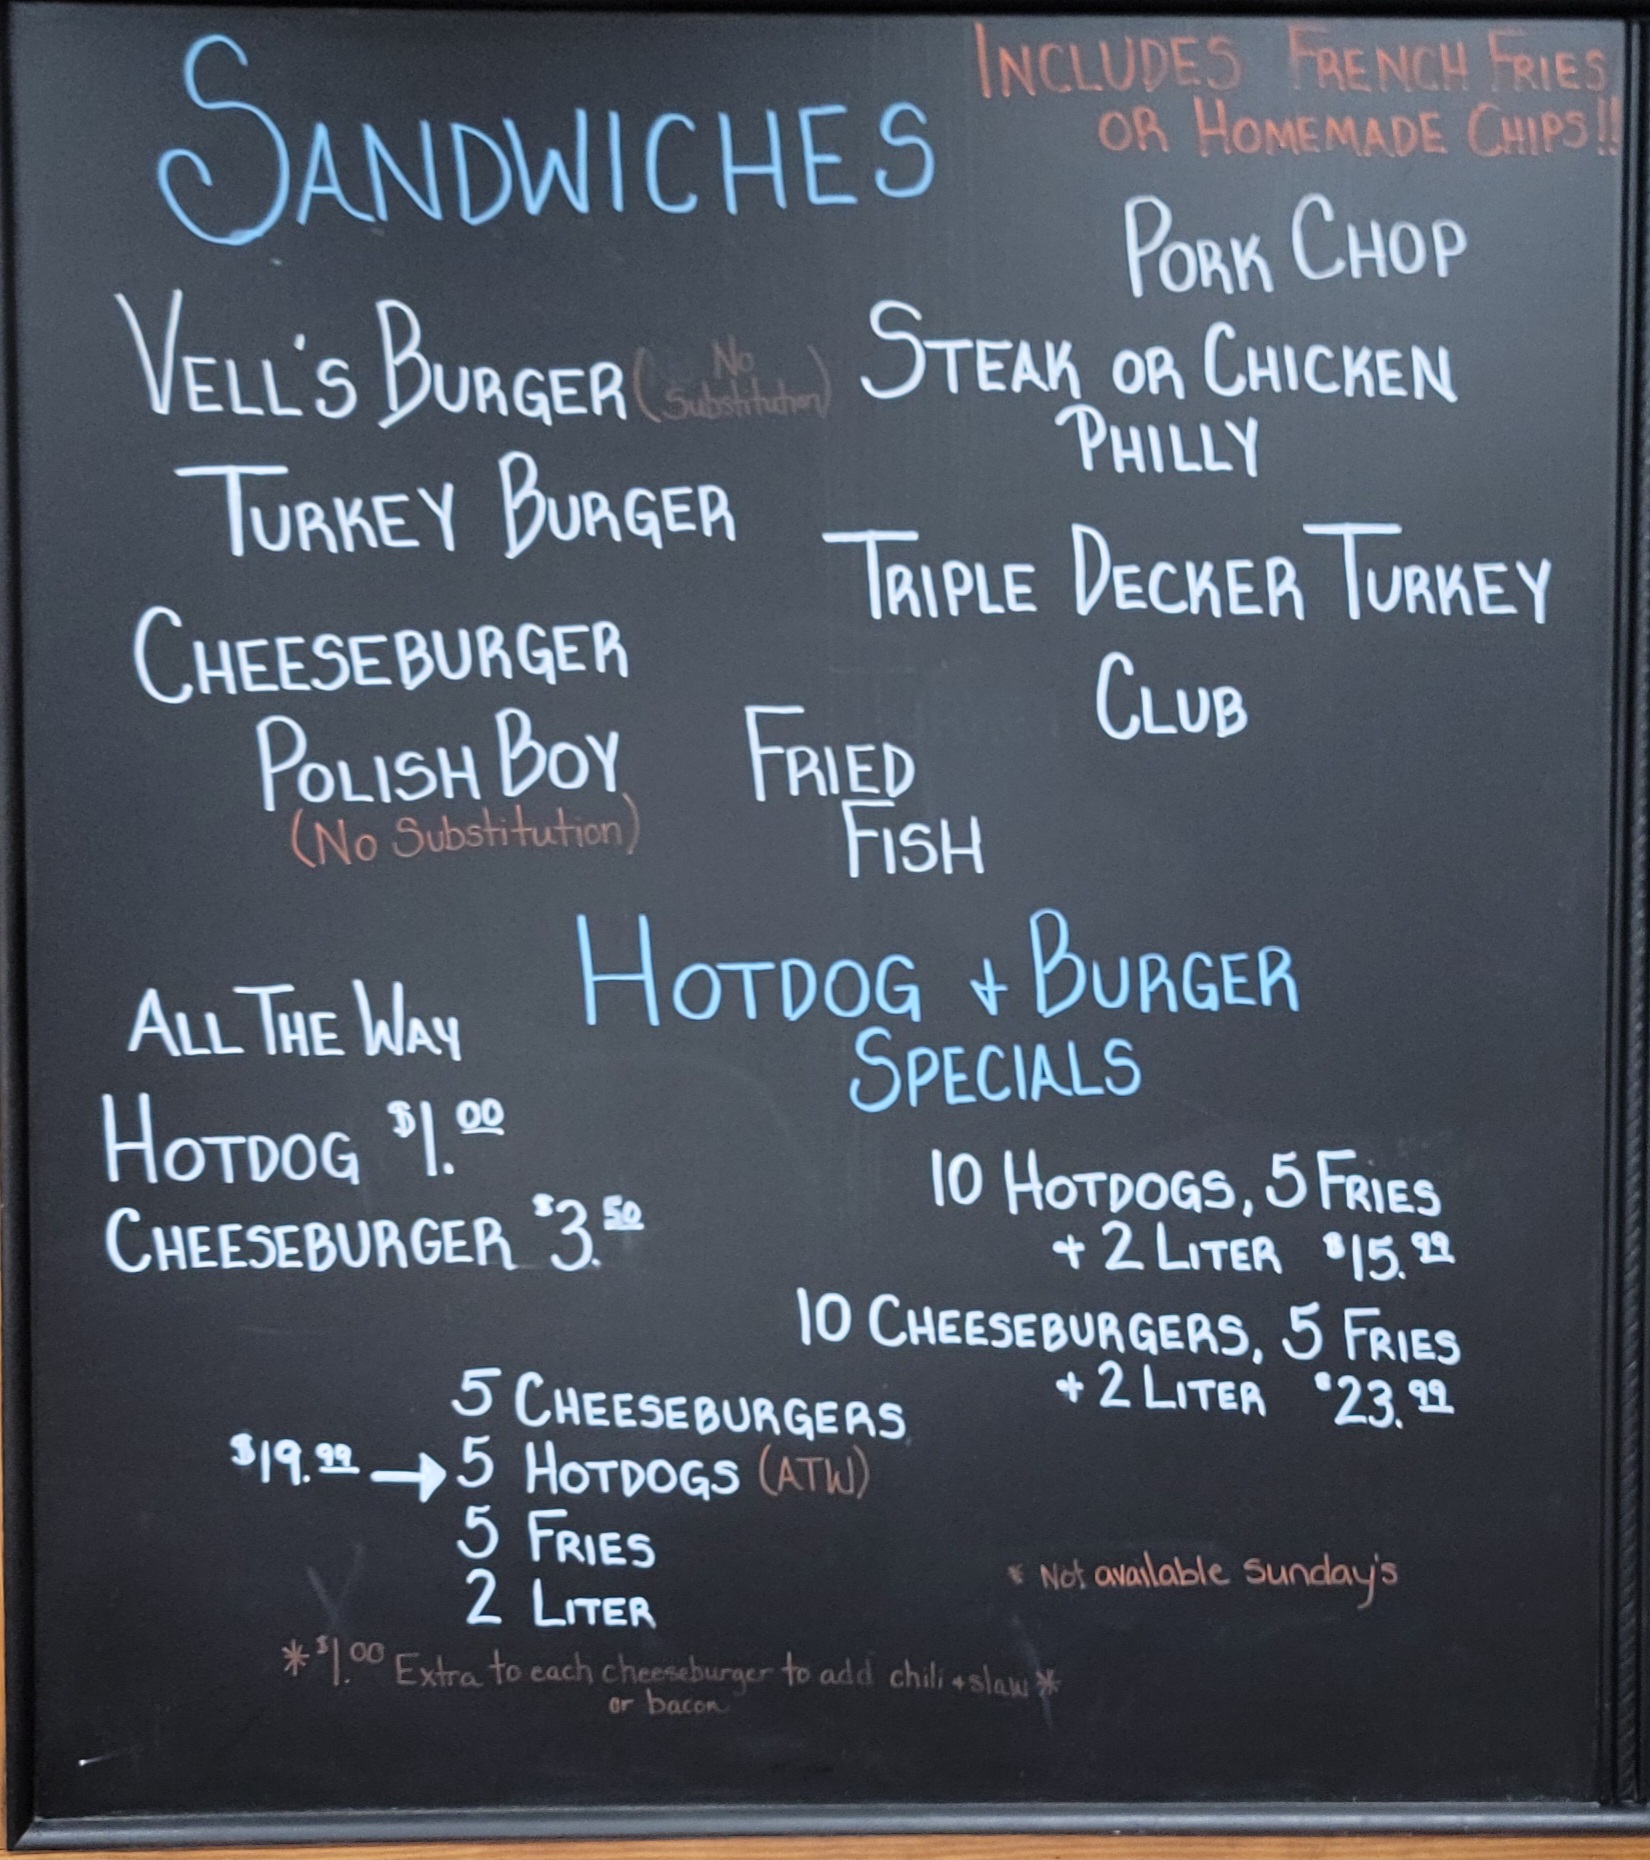 SANDWICHES
INCLUDES FRENCH FRIES
OR HOMEMADE CHIPS!!
VELL'S BURGER (No Substitution)
TURKEY BURGER
CHEESEBURGER
POLISH BOY
(No Substitution)
FRIED
FISH
PORK CHOP
STEAK OR CHICKEN
PHILLY
TRIPLE DECKER TURKEY
CLUB
HOTDOG + BURGER
SPECIALS
ALL THE WAY
HOTDOG $1.00
CHEESEBURGER $3.50
10 HOTDOGS, 5 FRIES
+ 2 LITER $15.99
10 CHEESEBURGERS, 5 FRIES
+ 2 LITER $23.99
5 CHEESEBURGERS
$19.99 → 5 HOTDOGS (ATW)
5 FRIES
2 LITER
* Not available Sunday's
*$1.00 Extra to each cheeseburger to add chili + slaw*
or bacon